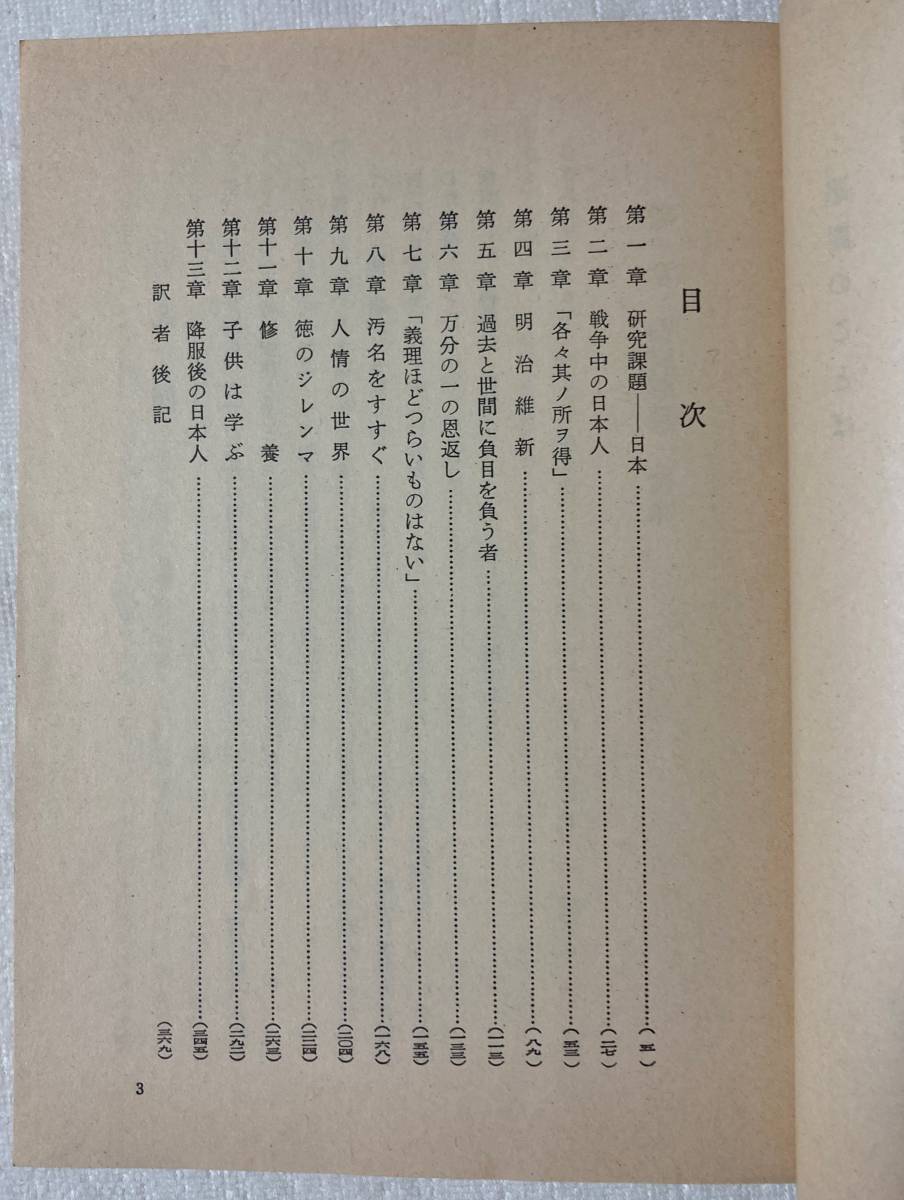 目次
第一章 研究課題――日本……(五)
第二章 戦争中の日本人……(二七)
第三章 「各々其ノ所ヲ得」……(五三)
第四章 明治維新……(八九)
第五章 過去と世間に負目を負う者……(一一三)
第六章 万分の一の恩返し……(一三三)
第七章 「義理ほどつらいものはない」……(一五五)
第八章 汚名をすすぐ……(一六八)
第九章 人情の世界……(二〇四)
第十章 徳のジレンマ……(二二四)
第十一章 修養……(二六三)
第十二章 子供は学ぶ……(二九二)
第十三章 降服後の日本人……(三四五)
訳者後記 (三六九)
3